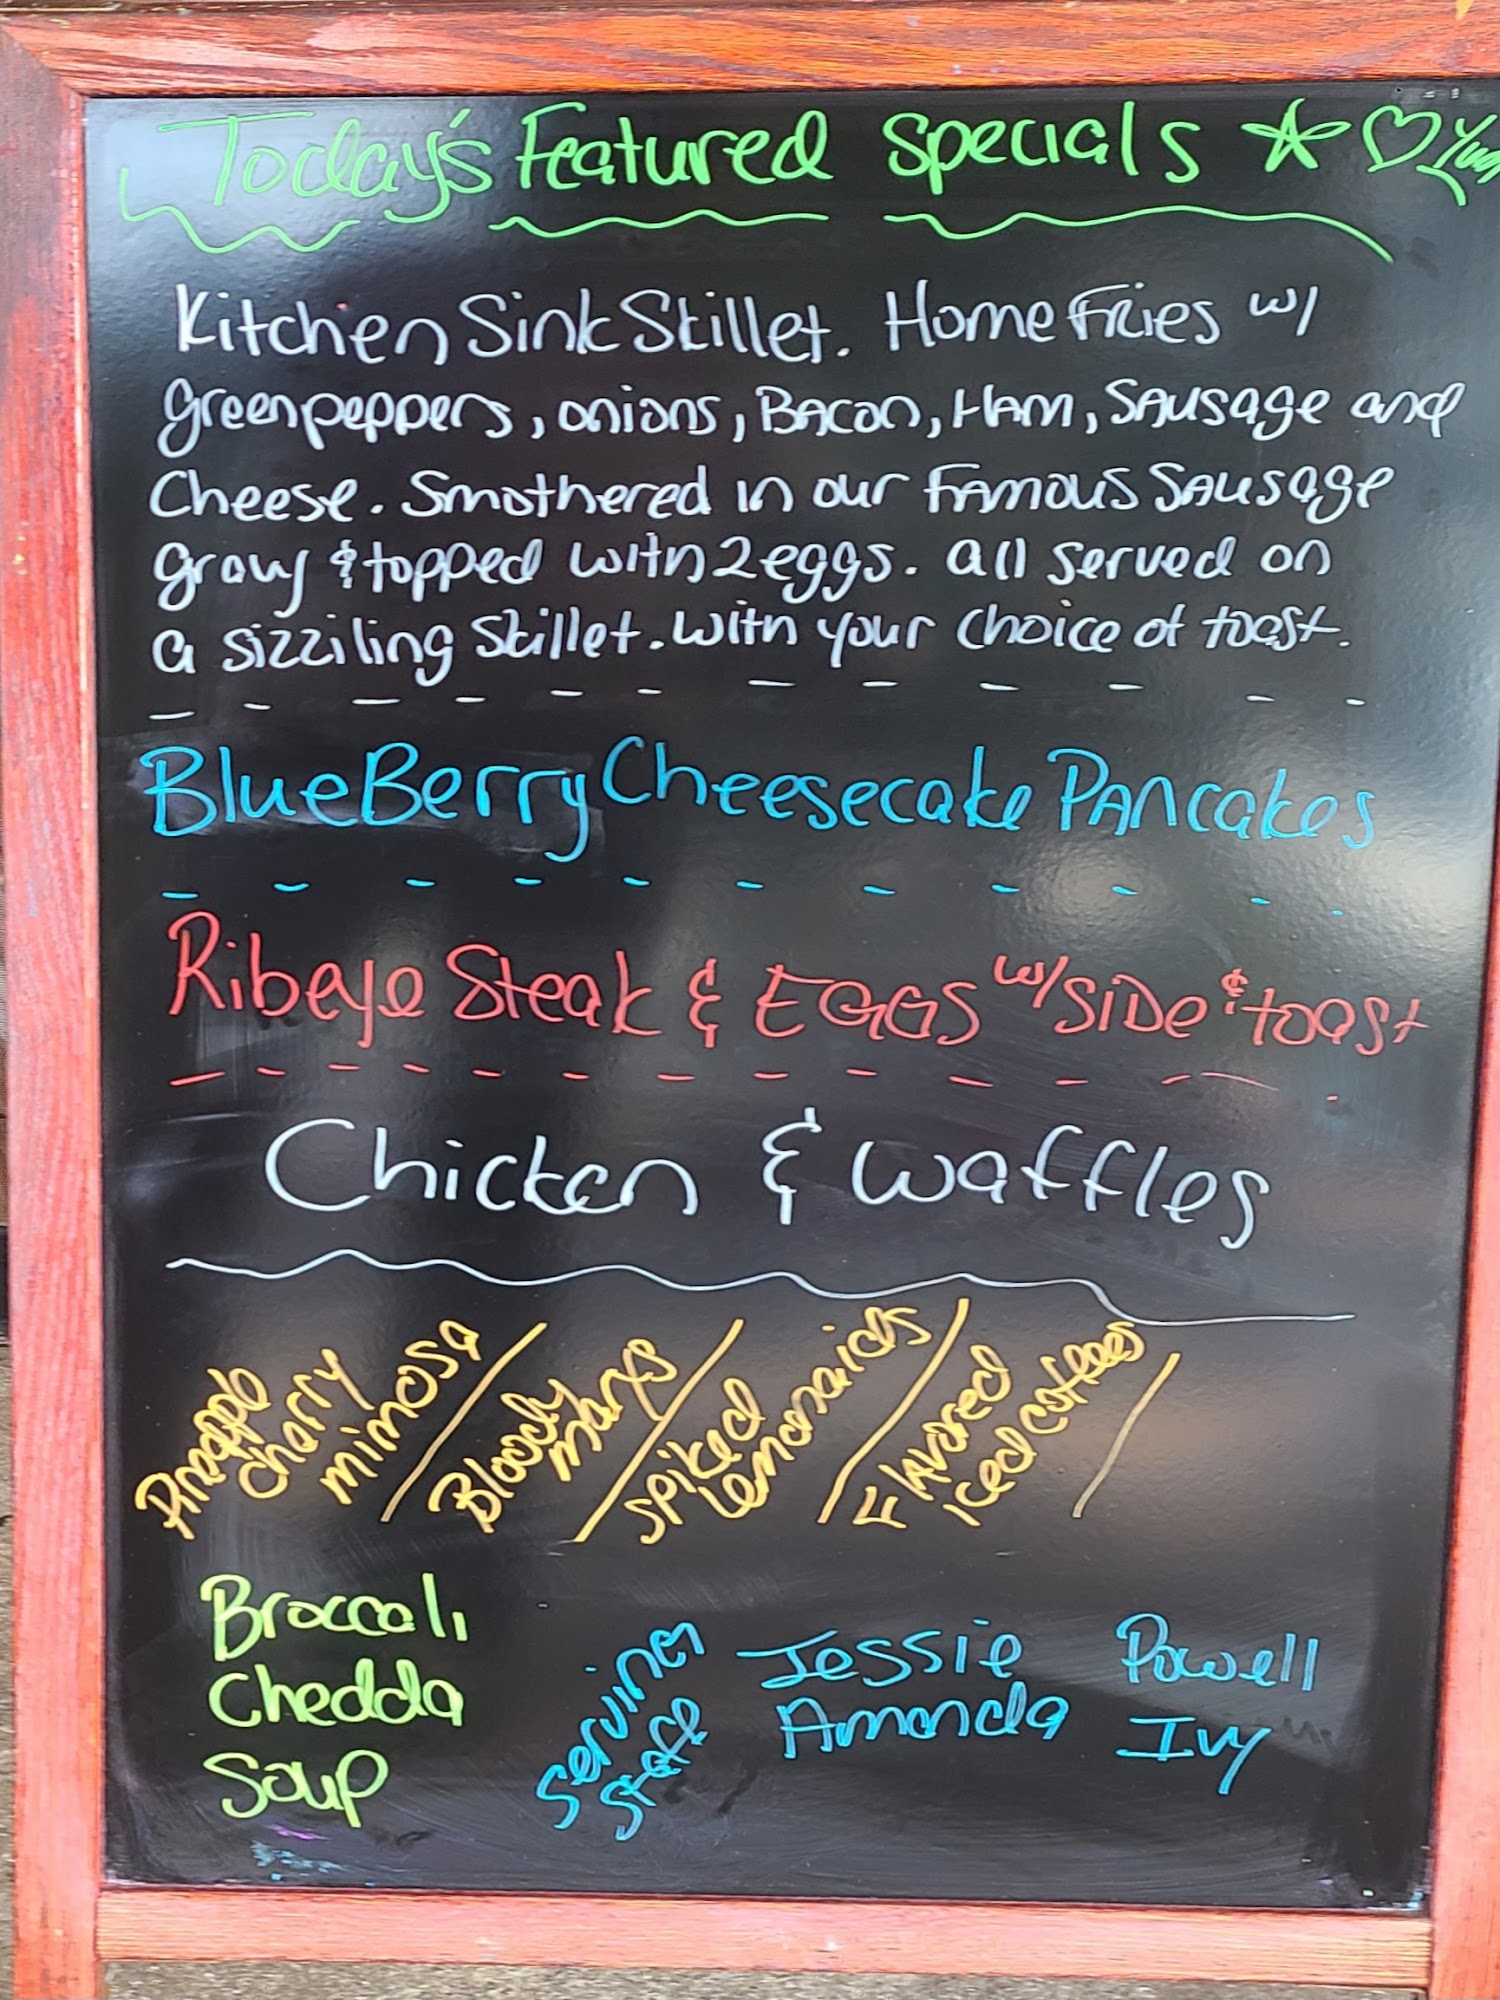 Today's Featured Specials
Kitchen Sink Skillet. Home Fries w/
green peppers, onions, Bacon, Ham, Sausage and
Cheese. Smothered in our Famous Sausage
gravy & topped with 2 eggs. all served on
a sizziling skillet. with your choice of toast.
BlueBerry Cheesecake Pancakes
Ribeye Steak & EGGS w/ SiDe & toast
Chicken & waffles
Pineapple
charry
mimosa
Bloody
marys
spiked
Lemonaides
Flavored
iced coffees
Broccoli
Chedda
Soup
serving
staff
Jessie
Amanda
Powell
Ivy